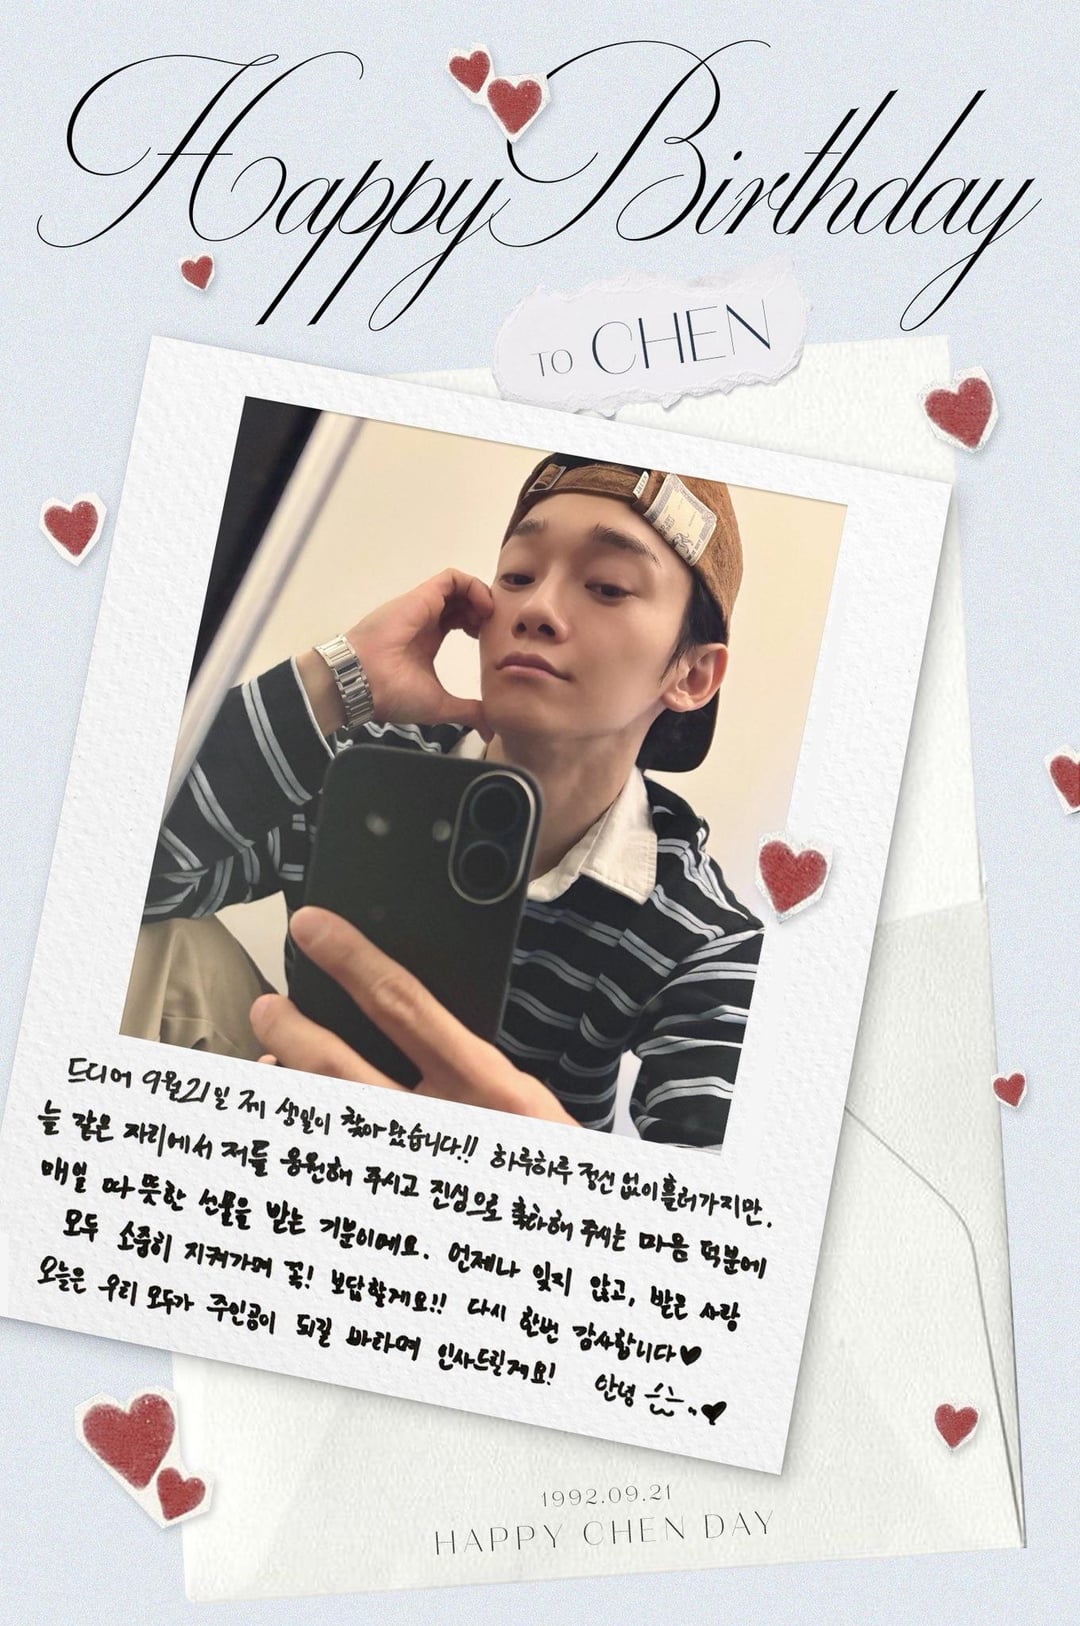 Happy Birthday
TO CHEN
드디어 9월21일 제 생일이 찾아왔습니다!! 하루하루 정신 없이 흘러가지만,
늘 같은 자리에서 저를 응원해 주시고 진심으로 축하해 주시는 마음 덕분에
매일 따뜻한 선물을 받는 기분이에요. 언제나 잊지 않고, 받은 사랑
모두 소중히 지켜가며 꼭! 보답할게요!! 다시 한번 감사합니다♥
오늘은 우리 모두가 주인공이 되길 바라며 인사드릴게요! 안녕 ♥
1992.09.21
HAPPY CHEN DAY